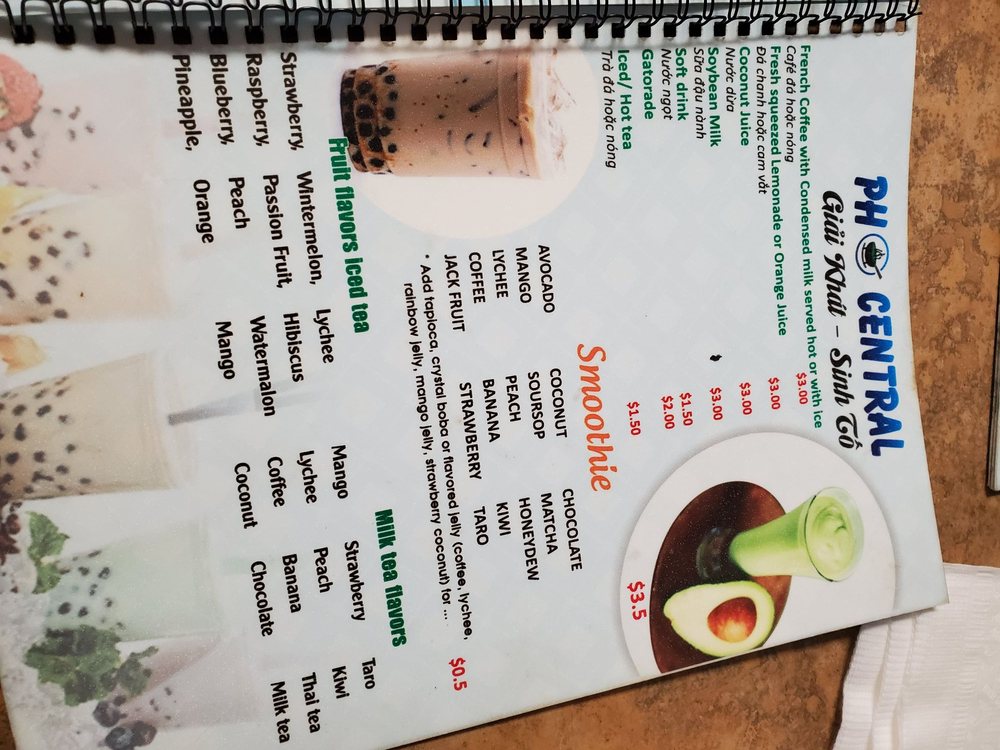 PHO CENTRAL
Giải Khát - Sinh Tố
French Coffee with Condensed milk served hot or with ice $3.00
Café đá hoặc nóng
Fresh squeezed Lemonade or Orange Juice $3.00
Đá chanh hoặc cam vắt
Coconut Juice $3.00
Nước dừa
Soybean Milk $3.00
Sữa đậu nành
Soft drink $1.50
Nước ngọt
Gatorade $2.00
Iced/ Hot tea $1.50
Trà đá hoặc nóng
Smoothie $3.5
AVOCADO COCONUT CHOCOLATE
MANGO SOURSOP MATCHA
LYCHEE PEACH HONEYDEW
COFFEE BANANA KIWI
JACK FRUIT STRAWBERRY TARO
• Add tapioca, crystal boba or flavored jelly (coffee, lychee,
rainbow jelly, mango jelly, strawberry coconut) for ... $0.5
Fruit flavors iced tea
Strawberry, Wintermelon, Lychee
Raspberry, Passion Fruit, Hibiscus
Blueberry, Peach Watermalon
Pineapple, Orange Mango
Milk tea flavors
Mango Strawberry Taro
Lychee Peach Kiwi
Coffee Banana Thai tea
Coconut Chocolate Milk tea